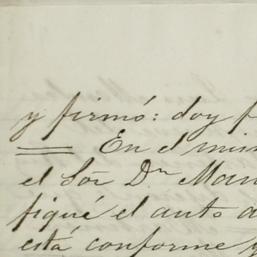 y firmó: doy f
En el mis
el Sor Dn Man
fiqué el auto a
está conforme y